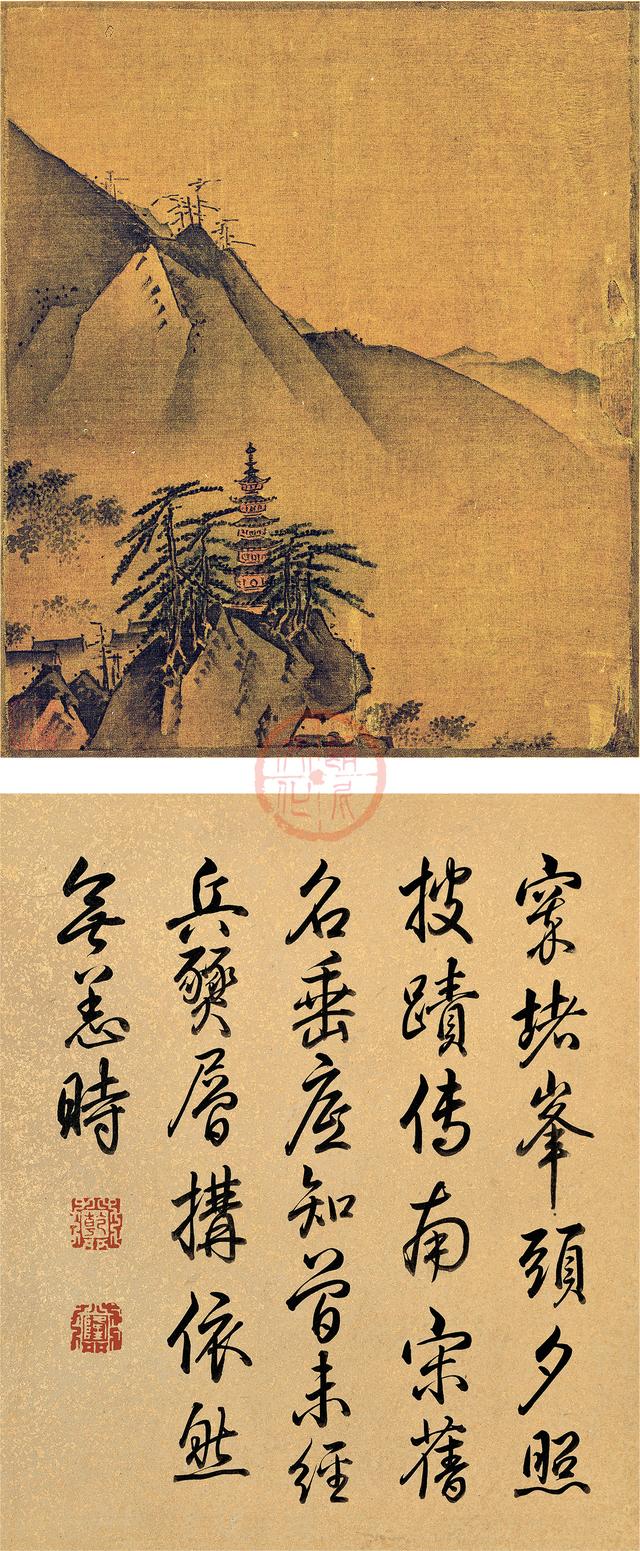 窣堵峯頭夕照
披蹟傳南宋舊
名垂應知曾未經
兵燹層搆依然
無恙時
乾
隆